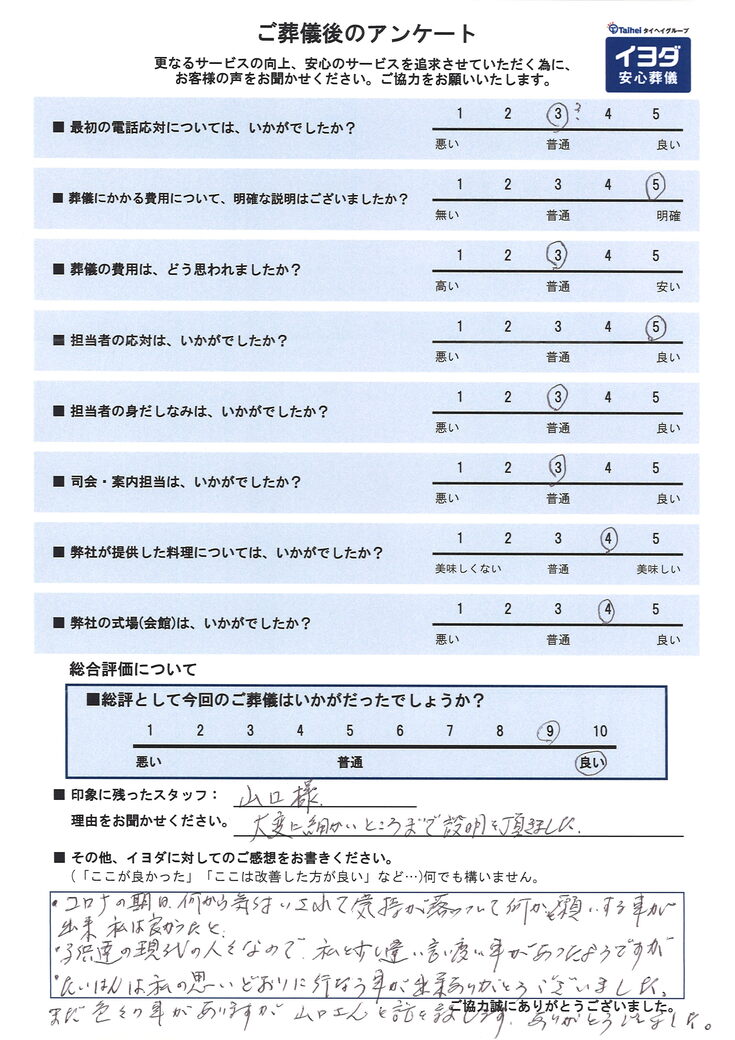 ご葬儀後のアンケート
Taihei タイヘイグループ
イヨダ
安心葬儀
更なるサービスの向上、安心のサービスを追求させていただく為に、
お客様の声をお聞かせください。ご協力をお願いいたします。
■ 最初の電話応対については、いかがでしたか？
1 2 3 ? 4 5
悪い 普通 良い
■ 葬儀にかかる費用について、明確な説明はございましたか？
1 2 3 4 5
無い 普通 明確
■ 葬儀の費用は、どう思われましたか？
1 2 3 4 5
高い 普通 安い
■ 担当者の応対は、いかがでしたか？
1 2 3 4 5
悪い 普通 良い
■ 担当者の身だしなみは、いかがでしたか？
1 2 3 4 5
悪い 普通 良い
■ 司会・案内担当は、いかがでしたか？
1 2 3 4 5
悪い 普通 良い
■ 弊社が提供した料理については、いかがでしたか？
1 2 3 4 5
美味しくない 普通 美味しい
■ 弊社の式場(会館)は、いかがでしたか？
1 2 3 4 5
悪い 普通 良い
総合評価について
■総評として今回のご葬儀はいかがだったでしょうか？
1 2 3 4 5 6 7 8 9 10
悪い 普通 良い
■ 印象に残ったスタッフ： 山口様
理由をお聞かせください。 大変に細かいところまで説明を頂ました.
■ その他、イヨダに対してのご感想をお書きください。
(「ここが良かった」「ここは改善した方が良い」など…)何でも構いません。
・コロナの期日、何から気付いされて気持が落ついて何かも願いする事が
出来 私は良かったと、
・子供達の現代の人々なので、私と少し違い言い度い事があったようですが
・たいはんは私の思いどおりに行なう事が出来ありがとうございました。
ご協力誠にありがとうございました。
まだ色々の事がありますが 山口さんと話を致します. ありがとうございました。